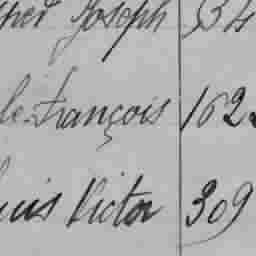 Joseph 34
le François 162
Victor 309